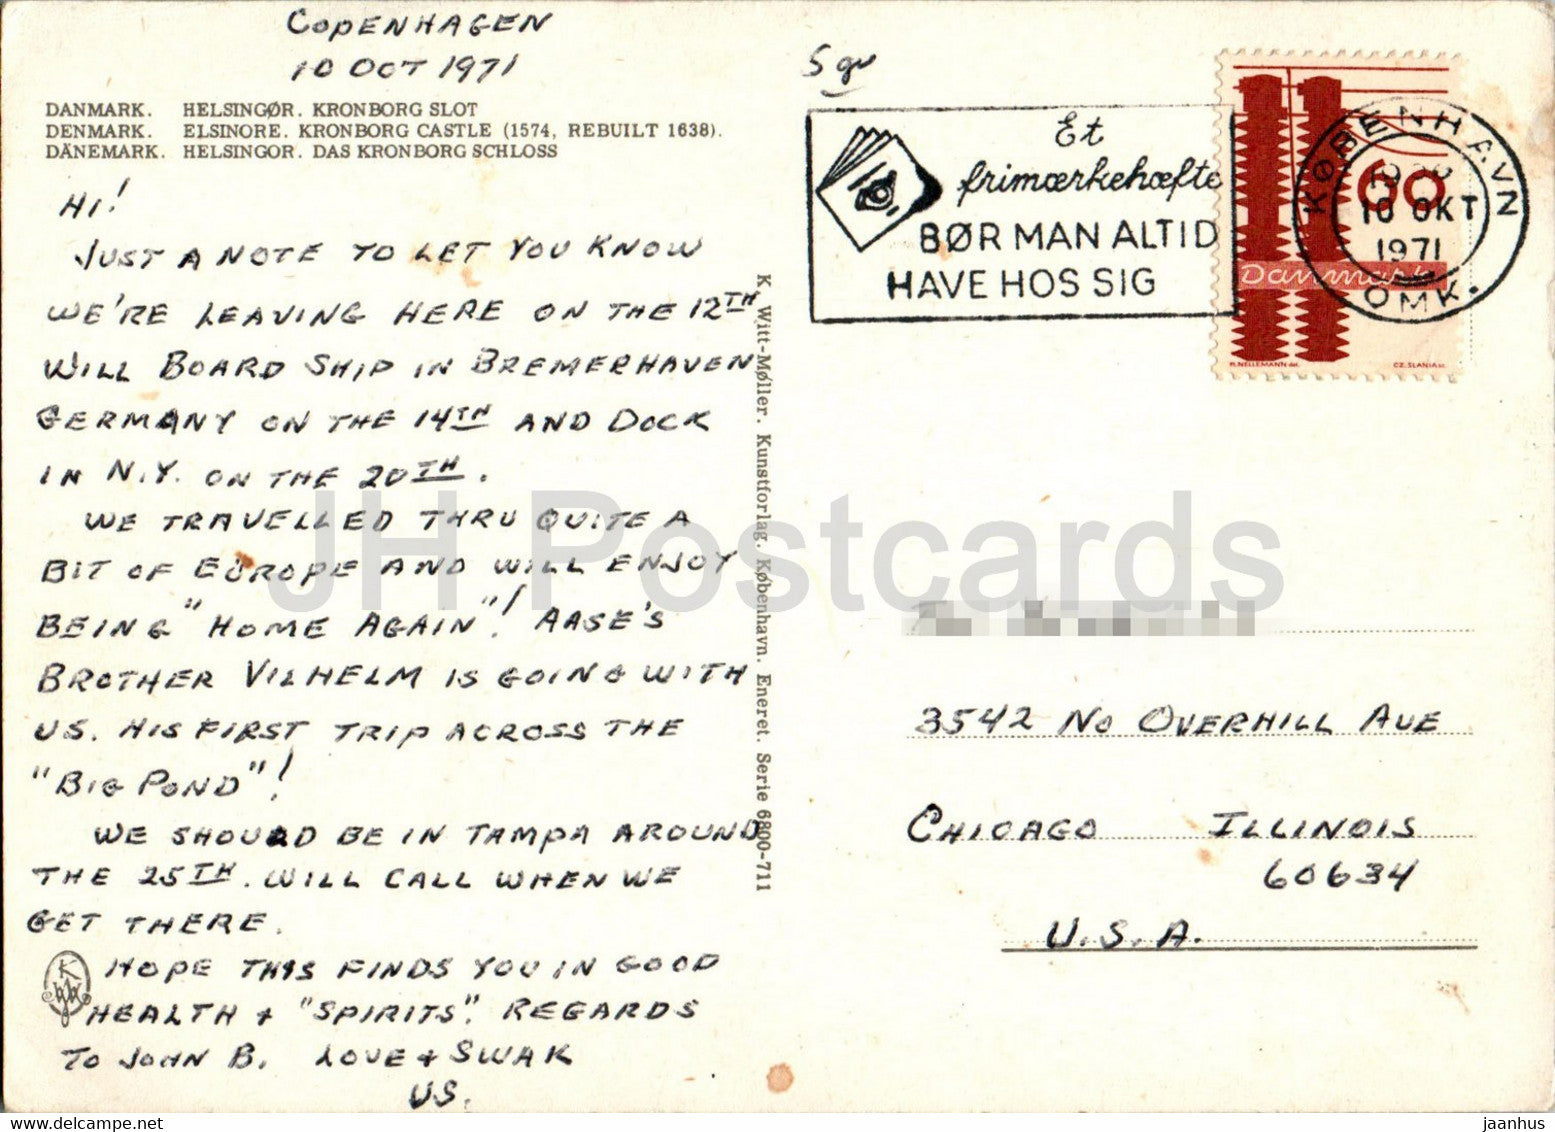 COPENHAGEN
10 OCT 1971
DANMARK. HELSINGØR. KRONBORG SLOT
DENMARK. ELSINORE. KRONBORG CASTLE (1574, REBUILT 1638).
DÄNEMARK. HELSINGOR. DAS KRONBORG SCHLOSS
HI!
JUST A NOTE TO LET YOU KNOW
WE'RE LEAVING HERE ON THE 12TH
WILL BOARD SHIP IN BREMERHAVEN
GERMANY ON THE 14TH AND DOCK
IN N.Y. ON THE 20TH.
WE TRAVELLED THRU QUITE A
BIT OF EUROPE AND WILL ENJOY
BEING "HOME AGAIN"! AASE'S
BROTHER VILHELM IS GOING WITH
US. HIS FIRST TRIP ACROSS THE
"BIG POND"!
WE SHOULD BE IN TAMPA AROUND
THE 25TH. WILL CALL WHEN WE
GET THERE.
HOPE THIS FINDS YOU IN GOOD
HEALTH + "SPIRITS". REGARDS
TO JOHN B. LOVE + SWAK
US.
K. Witt-Møller. Kunstforlag. København. Eneret. Serie 6800-711
Et
frimærkehæfte
BØR MAN ALTID
HAVE HOS SIG
60
Danmark
R. NELLEMANN del.
CZ. SLANIA sc.
KØBENHAVN
10 OKT
1971
OMK.
3542 NO OVERHILL AVE
CHICAGO ILLINOIS
60634
U.S.A.
JH Postcards
www.delcampe.net
jaanhus